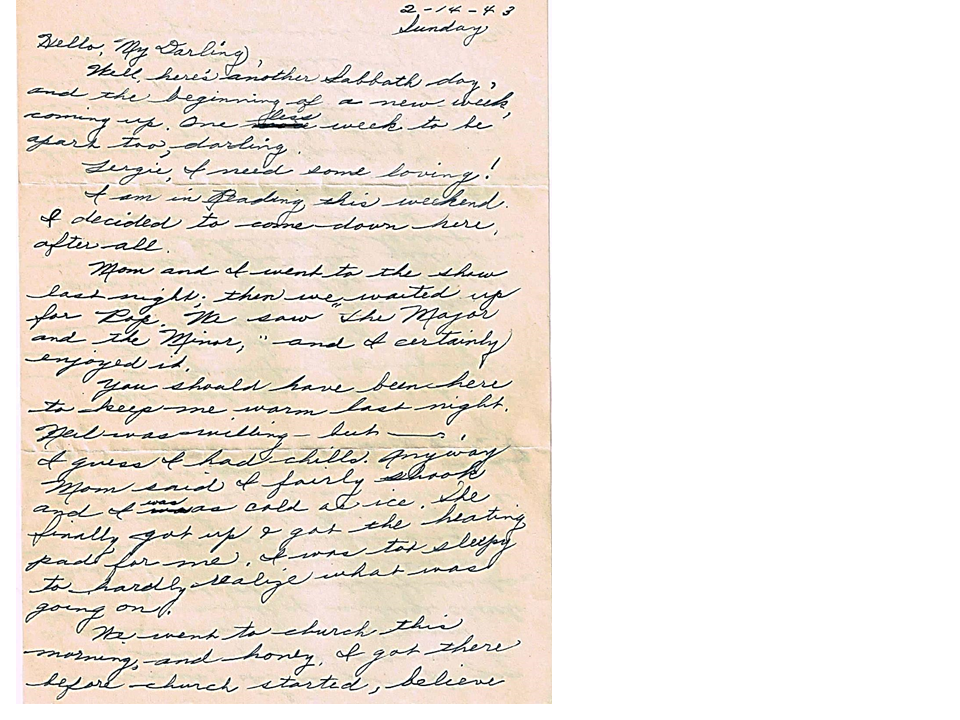 2-14-43
Sunday
Hello, My Darling,
Well, here's another Sabbath day,
and the beginning of a new week,
coming up. One less week to be
apart too, darling.
Gergie, I need some loving!
I am in Reading this weekend.
I decided to come down here,
after all.
Mom and I went to the show
last night; then we waited up
for Pop. We saw "The Major
and the Minor," and I certainly
enjoyed it.
You should have been here
to keep me warm last night.
Neil was willing - but —.
I guess I had chills. Anyway
Mom said I fairly shook
and I was as cold as ice. She
finally got up & got the heating
pad for me. I was too sleepy
to hardly realize what was
going on.
We went to church this
morning, and honey, I got there
before church started, believe